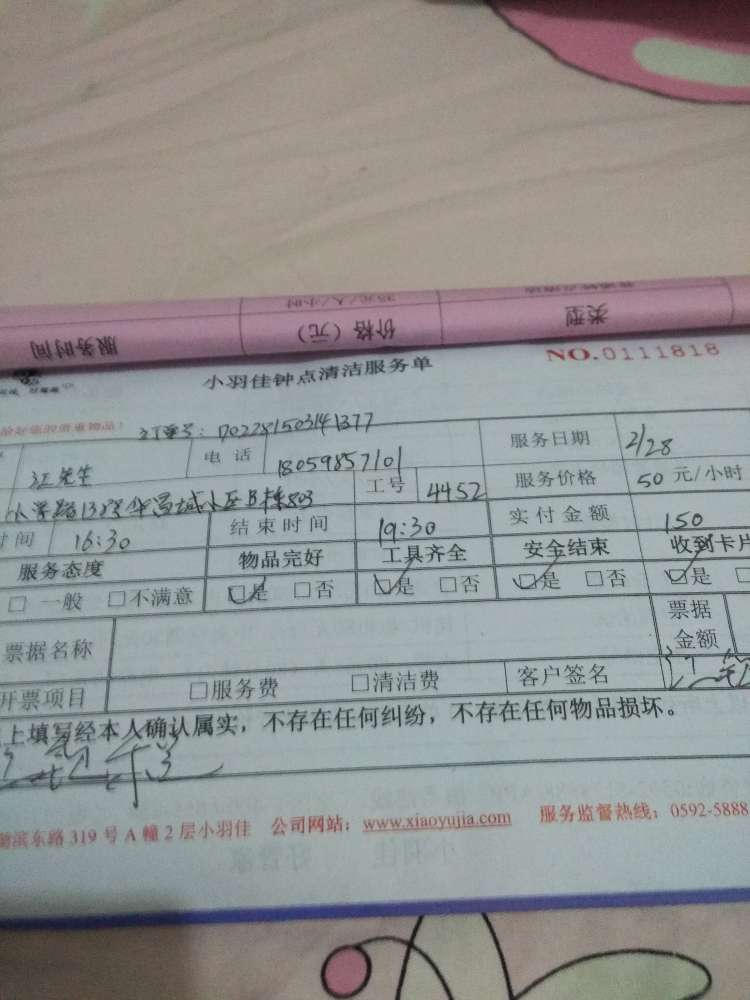 服务时间 价格（元） 类型
35元/人/小时
NO.0111818
小羽佳钟点清洁服务单
订单号：D02281503141377
江先生 电话 18059857101 服务日期 2/28
工号 4452 服务价格 50 元/小时
时间 16:30 结束时间 19:30 实付金额 150
服务态度 物品完好 工具齐全 安全结束 收到卡片
□ 一般 □不满意 □是 □否 □是 □否 □是 □否 □是
票据名称 票据金额
开票项目 □服务费 □清洁费 客户签名
上填写经本人确认属实，不存在任何纠纷，不存在任何物品损坏。
滨东路 319 号 A 幢 2 层小羽佳 公司网站：www.xiaoyujia.com 服务监督热线：0592-5888